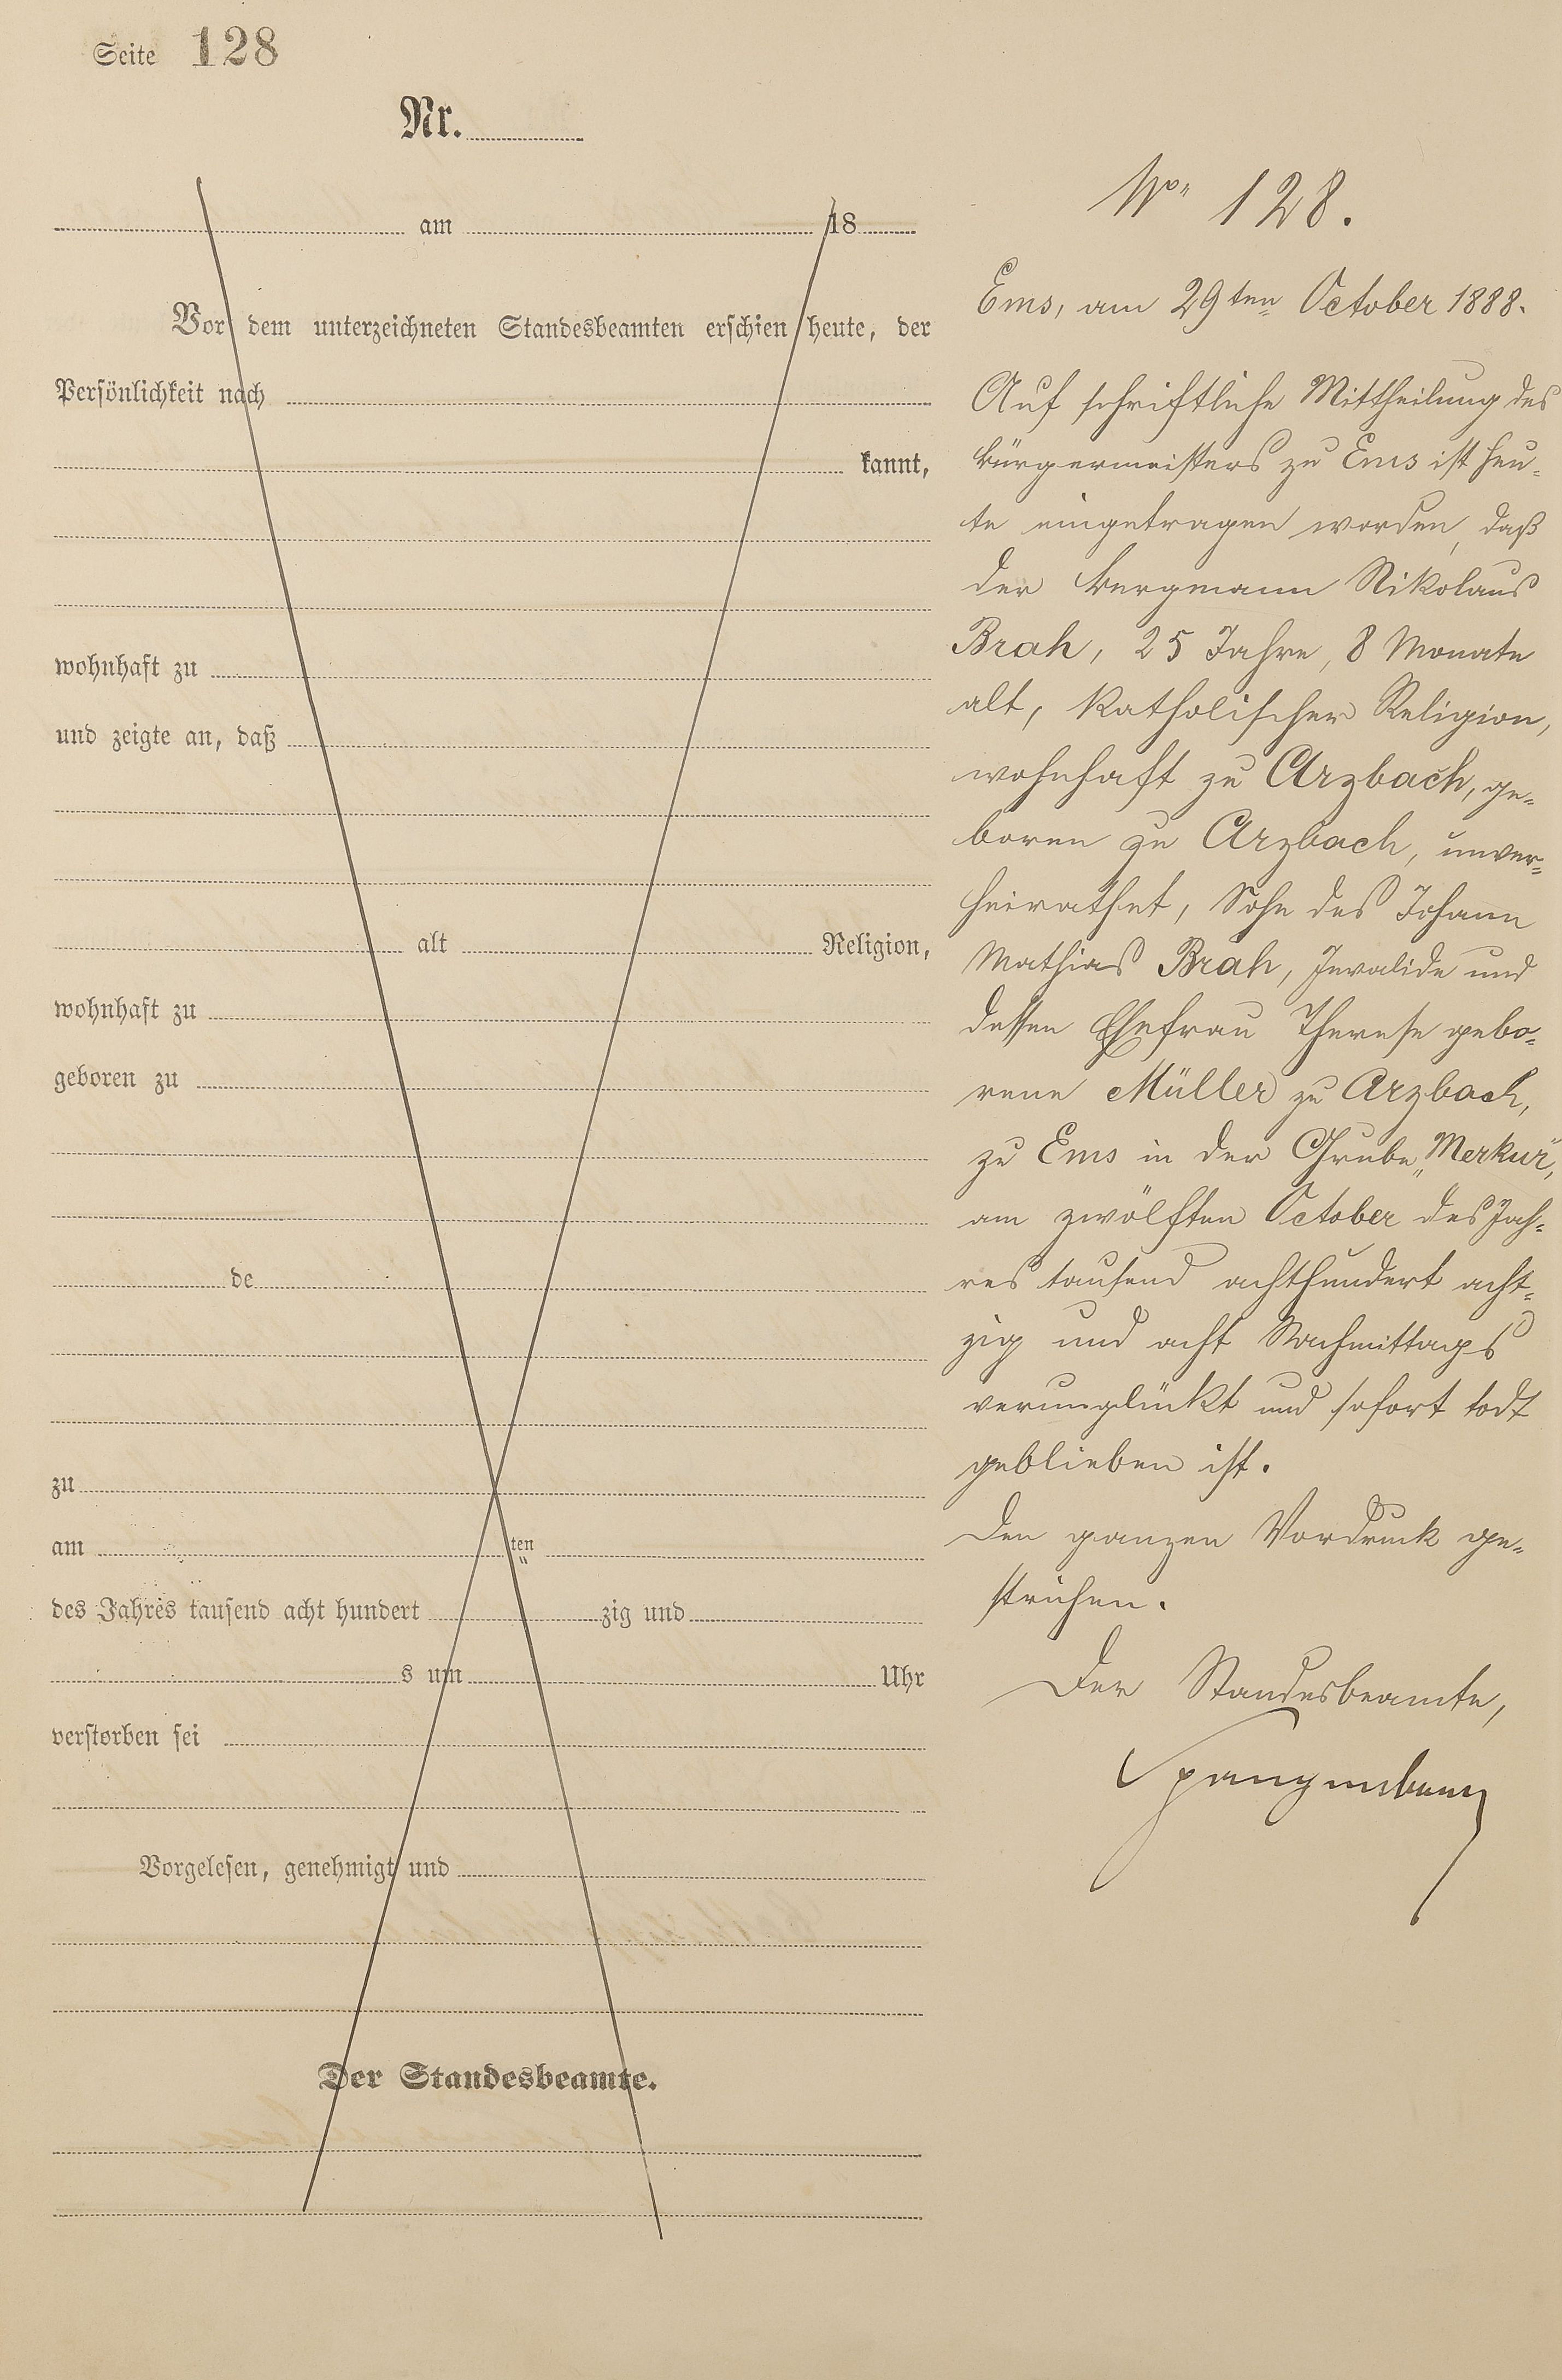 Seite 128
Nr.
am 18
Vor dem unterzeichneten Standesbeamten erschien heute, der
Persönlichkeit nach
kannt,
wohnhaft zu
und zeigte an, daß
alt Religion,
wohnhaft zu
geboren zu
de
zu
am ten
des Jahres tausend acht hundert zig und
s um Uhr
verstorben sei
Vorgelesen, genehmigt und
Der Standesbeamte.
No 128.
Ems, am 29ten October 1888.
Auf schriftliche Mittheilung des
Bürgermeisters zu Ems ist heu-
te eingetragen worden, daß
der Bergmann Nikolaus
Brah, 25 Jahre, 8 Monate
alt, katholischer Religion,
wohnhaft zu Arzbach, ge-
boren zu Arzbach, unver-
heirathet, Sohn des Johann
Mathias Brah, Invalide und
dessen Ehefrau Therese gebo-
rene Müller zu Arzbach,
zu Ems in der Grube „Merkur",
am zwölften October des Jah-
res tausend achthundert acht-
zig und acht Nachmittags
verunglückt und sofort todt
geblieben ist.
Den ganzen Vordruck ge-
strichen.
Der Standesbeamte,